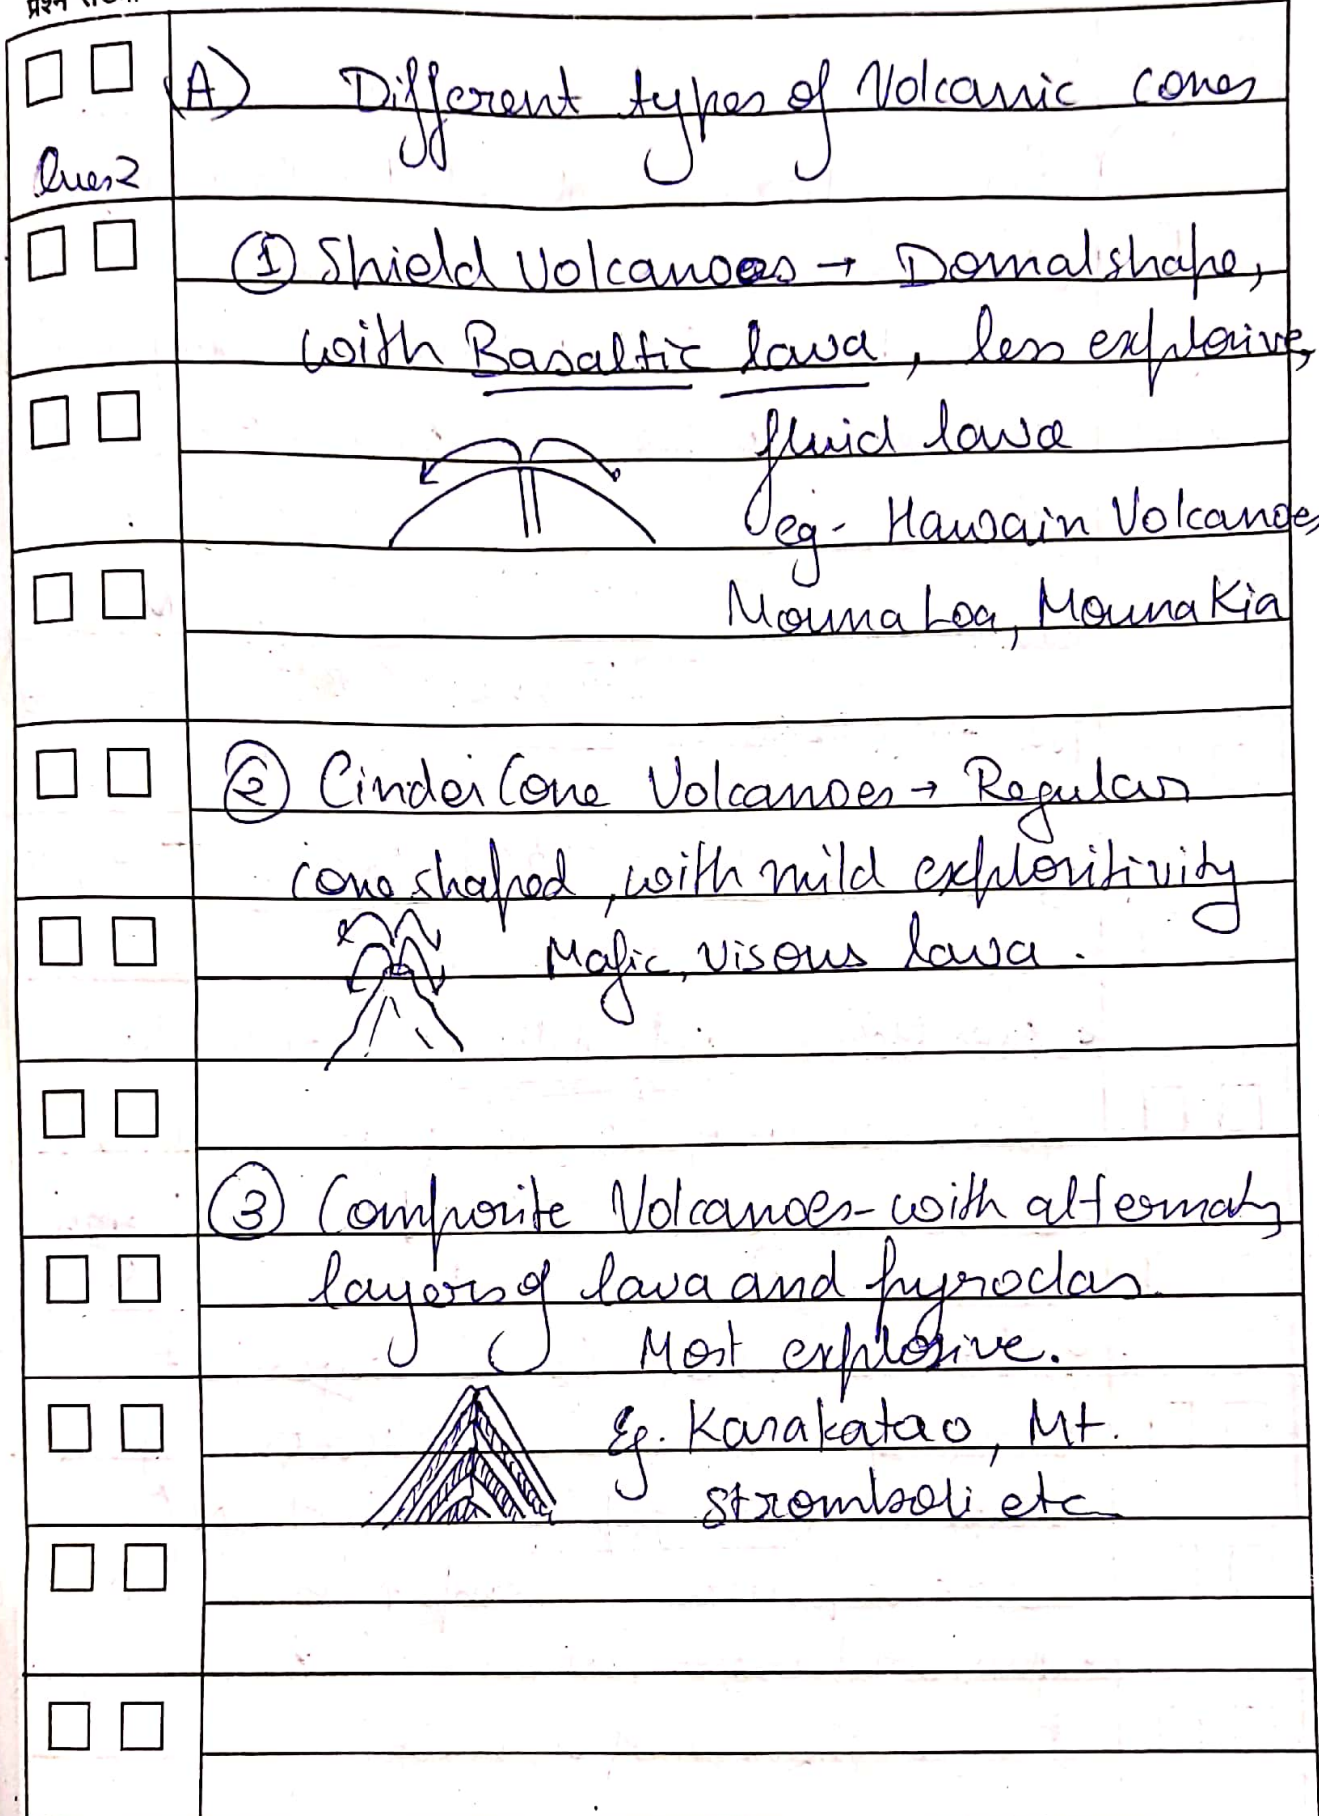 प्रश्न
(A) Different types of Volcanic cones
Ques2
① Shield Volcanoes → Domal shape,
with Basaltic lava, less explosive,
fluid lava
eg- Hawain Volcanoes,
Mouna Loa, Mouna Kia
② Cinder Cone Volcanoes → Regular
cone shaped, with mild explositivity
Mafic, visous lava.
③ Composite Volcanoes - with alternate
layers of lava and pyroclas
Most explosive.
Eg. Karakatao, Mt.
Stromboli etc